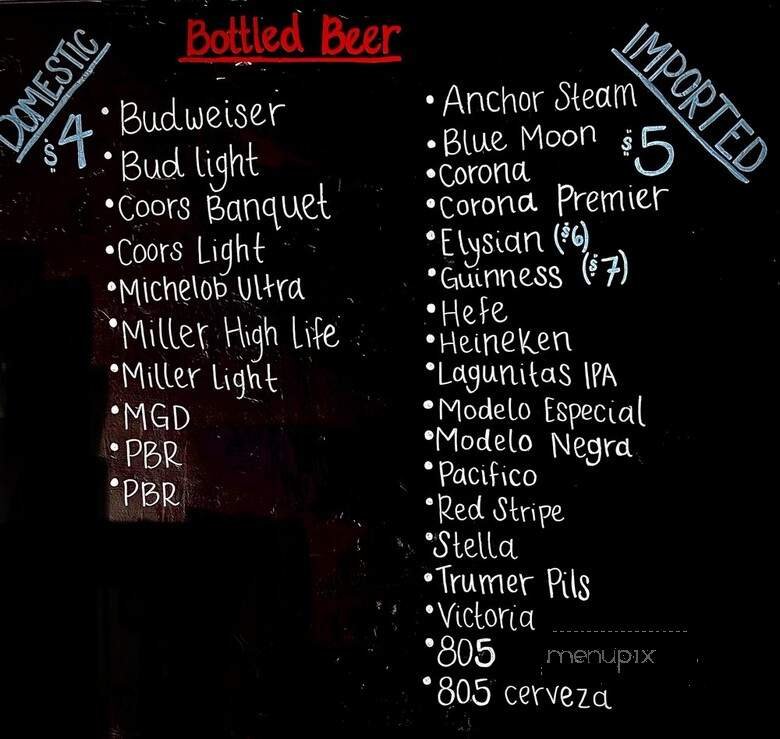 Bottled Beer
DOMESTIC
$4
• Budweiser
• Bud light
• Coors Banquet
• Coors Light
• Michelob Ultra
• Miller High Life
• Miller Light
• MGD
• PBR
• PBR
IMPORTED
$5
• Anchor Steam
• Blue Moon
• Corona
• Corona Premier
• Elysian ($6)
• Guinness ($7)
• Hefe
• Heineken
• Lagunitas IPA
• Modelo Especial
• Modelo Negra
• Pacifico
• Red Stripe
• Stella
• Trumer Pils
• Victoria
• 805
• 805 cerveza
menupix